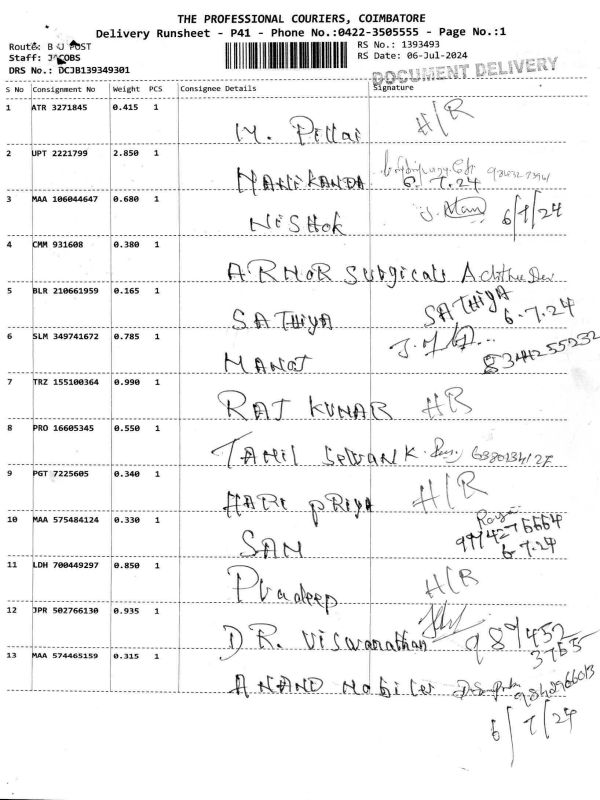 THE PROFESSIONAL COURIERS, COIMBATORE
Delivery Runsheet - P41 - Phone No.:0422-3505555 - Page No.:1
Route: B U POST
RS No.: 1393493
Staff: JACOBS
RS Date: 06-Jul-2024
DRS No.: DCJB139349301
DOCUMENT DELIVERY
S No Consignment No Weight PCS Consignee Details Signature
1 ATR 3271845 0.415 1
M. Pillai H/R
2 UPT 2221799 2.850 1
MANIKANDA 6.7.24
3 MAA 106044647 0.680 1
NISHOK 6/7/24
4 CMM 931608 0.380 1
ARNOR Surgicals
5 BLR 210661959 0.165 1
SATHIYA SATHIYA 6.7.24
6 SLM 349741672 0.785 1
MANOJ 8344255232
7 TRZ 155100364 0.990 1
RAJ KUMAR H/R
8 PRO 16605345 0.550 1
TAMIL SELVAN K
9 PGT 7225605 0.340 1
HARI PRIYA H/R
10 MAA 575484124 0.330 1
SAM 6.7.24
11 LDH 700449297 0.850 1
Pradeep H/R
12 JPR 502766130 0.935 1
DR. Viswanathan 989452
3765
13 MAA 574465159 0.315 1
ANAND Mobiles
6/7/24